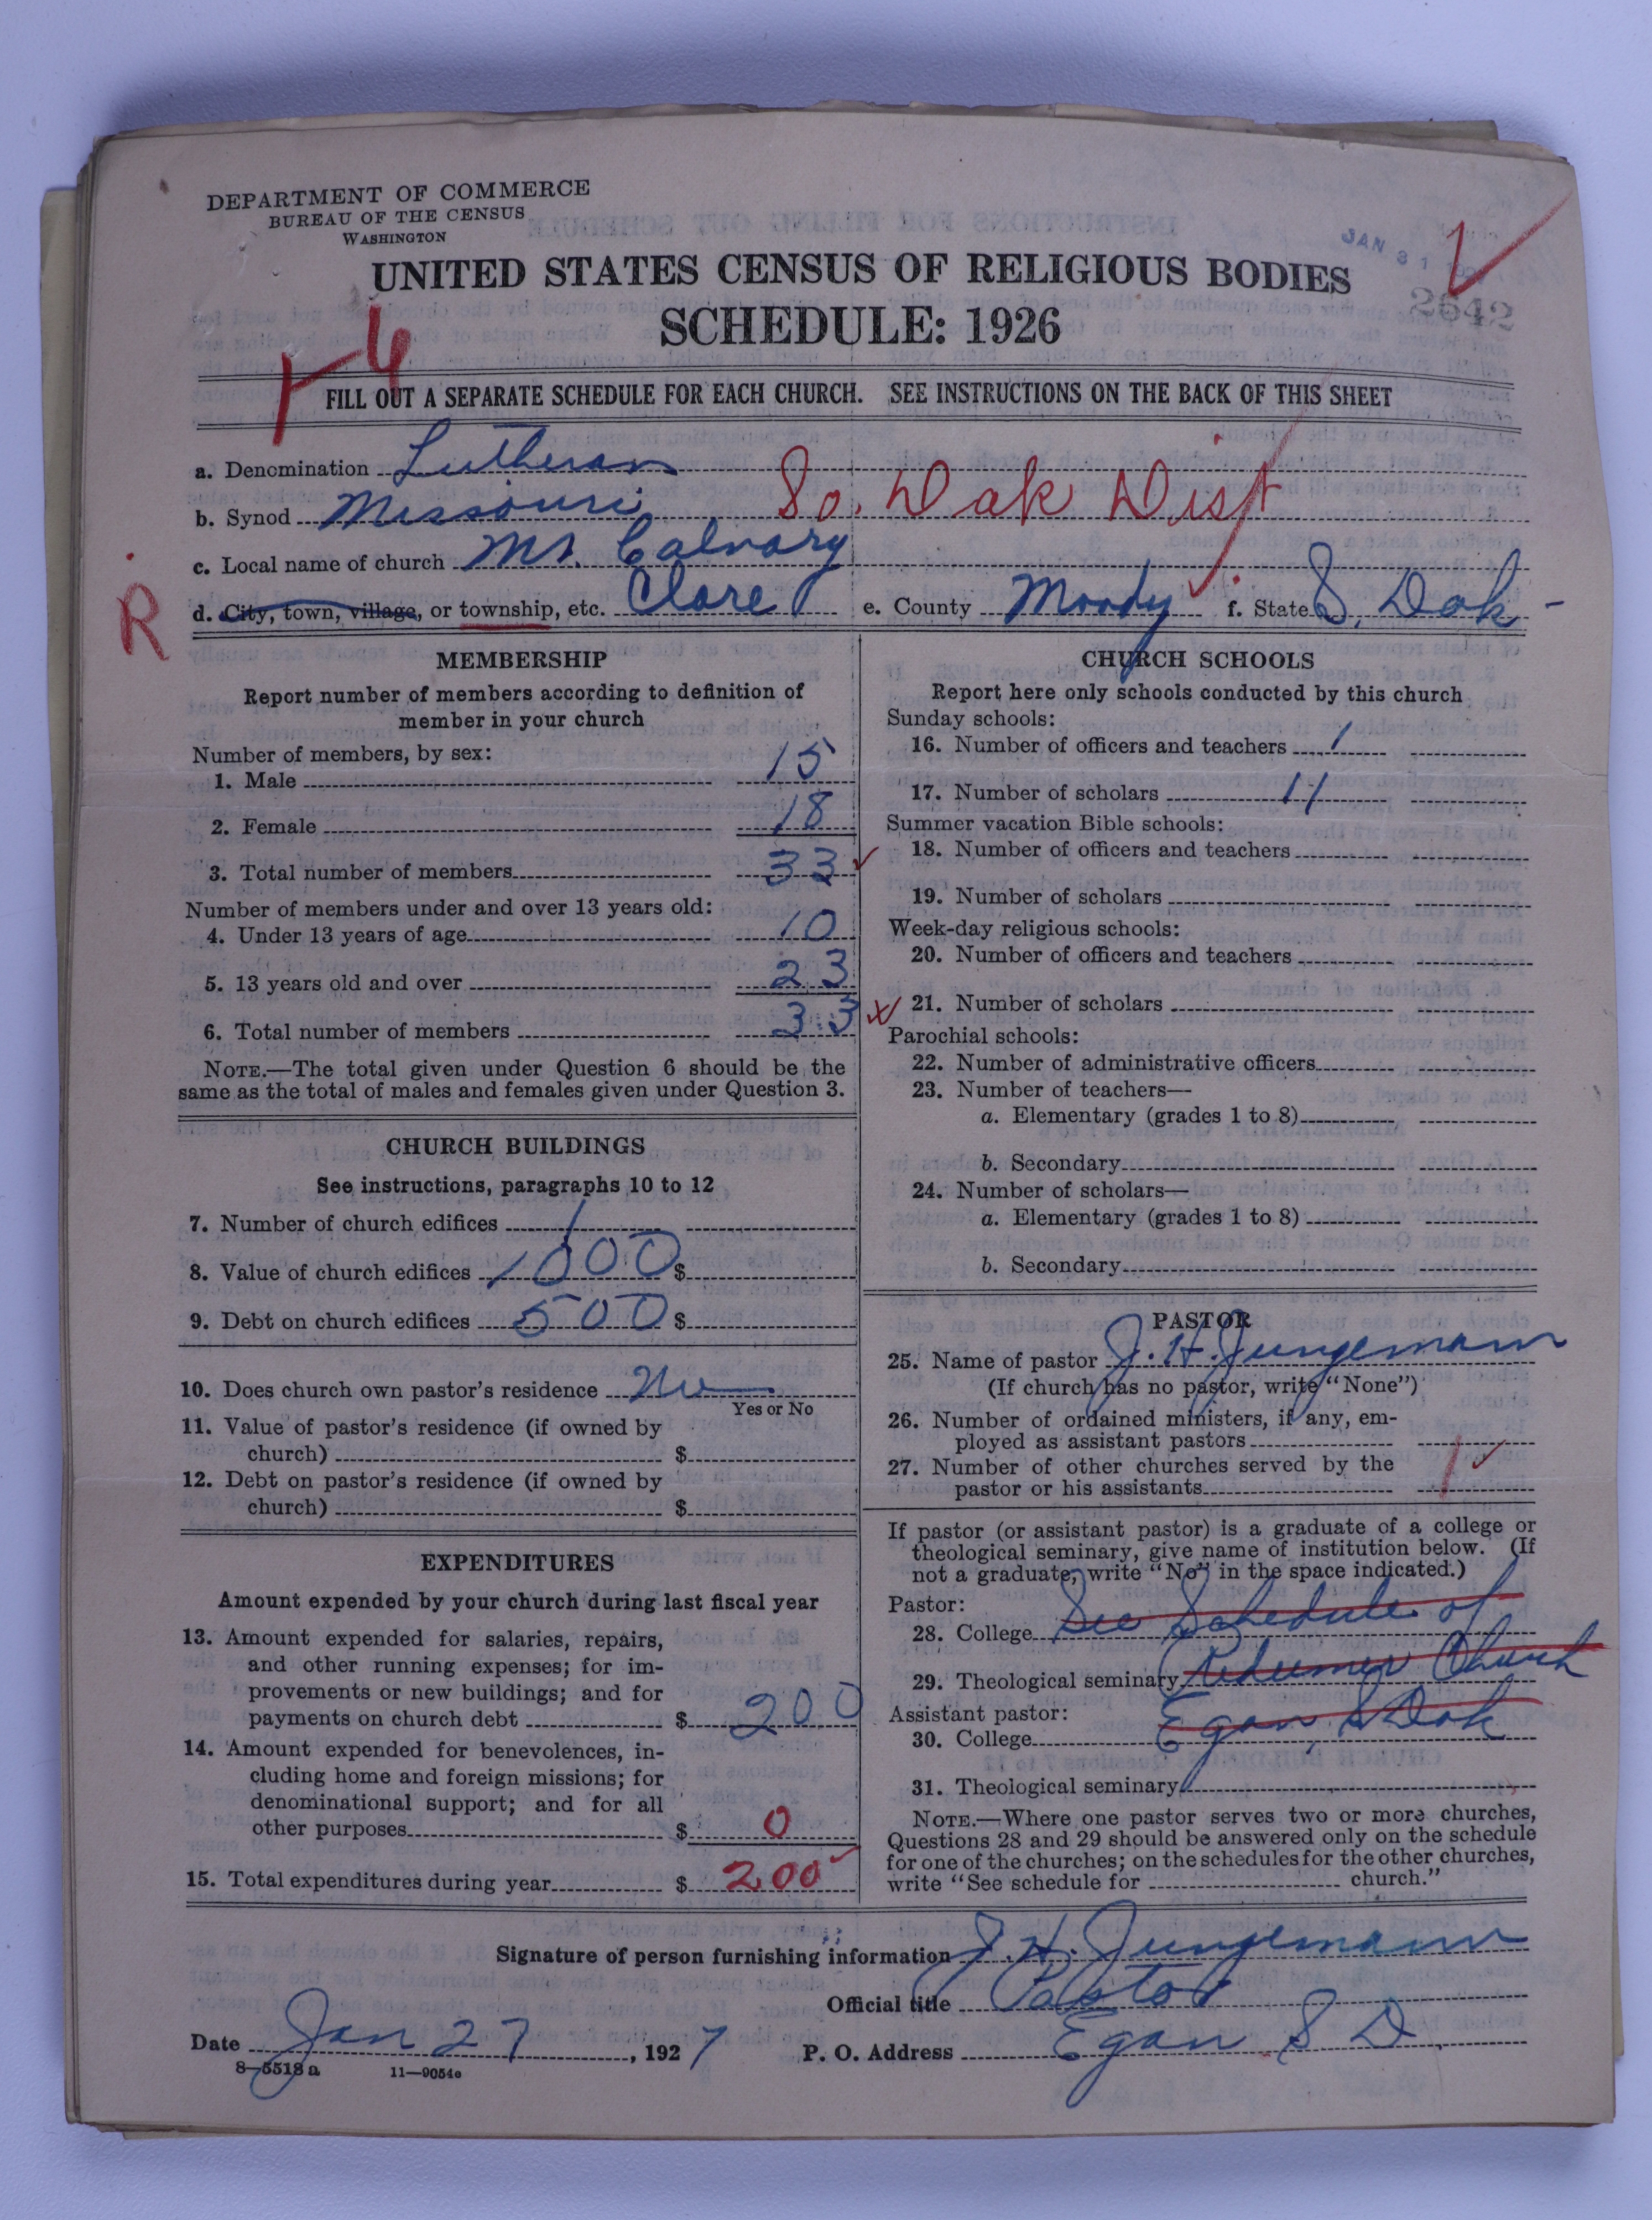 DEPARTMENT OF COMMERCE
BUREAU OF THE CENSUS
WASHINGTON
JAN 31
2642
UNITED STATES CENSUS OF RELIGIOUS BODIES
SCHEDULE: 1926
FILL OUT A SEPARATE SCHEDULE FOR EACH CHURCH. SEE INSTRUCTIONS ON THE BACK OF THIS SHEET
a. Denomination Lutheran
b. Synod Missouri So. Dak Dist
c. Local name of church Mt. Calvary
R
d. City, town, village, or township, etc. Clare e. County Moody f. State S. Dak -
MEMBERSHIP
Report number of members according to definition of
member in your church
Number of members, by sex:
1. Male 15
2. Female 18
3. Total number of members 33
Number of members under and over 13 years old:
4. Under 13 years of age 10
5. 13 years old and over 23
6. Total number of members 33
NOTE.—The total given under Question 6 should be the
same as the total of males and females given under Question 3.
CHURCH BUILDINGS
See instructions, paragraphs 10 to 12
7. Number of church edifices 1
8. Value of church edifices 1000 $
9. Debt on church edifices 500 $
10. Does church own pastor's residence No
Yes or No
11. Value of pastor's residence (if owned by
church) $
12. Debt on pastor's residence (if owned by
church) $
EXPENDITURES
Amount expended by your church during last fiscal year
13. Amount expended for salaries, repairs,
and other running expenses; for im-
provements or new buildings; and for
payments on church debt $ 200
14. Amount expended for benevolences, in-
cluding home and foreign missions; for
denominational support; and for all
other purposes $ 0
15. Total expenditures during year $ 200
CHURCH SCHOOLS
Report here only schools conducted by this church
Sunday schools:
16. Number of officers and teachers 1
17. Number of scholars 11
Summer vacation Bible schools:
18. Number of officers and teachers
19. Number of scholars
Week-day religious schools:
20. Number of officers and teachers
21. Number of scholars
Parochial schools:
22. Number of administrative officers
23. Number of teachers—
a. Elementary (grades 1 to 8)
b. Secondary
24. Number of scholars—
a. Elementary (grades 1 to 8)
b. Secondary
PASTOR
25. Name of pastor J. H. Jungemann
(If church has no pastor, write "None")
26. Number of ordained ministers, if any, em-
ployed as assistant pastors
27. Number of other churches served by the
pastor or his assistants 1
If pastor (or assistant pastor) is a graduate of a college or
theological seminary, give name of institution below. (If
not a graduate, write "No" in the space indicated.)
Pastor:
28. College See Schedule of
29. Theological seminary Redeemer Church
Assistant pastor:
30. College Egan, S Dak
31. Theological seminary
NOTE.—Where one pastor serves two or more churches,
Questions 28 and 29 should be answered only on the schedule
for one of the churches; on the schedules for the other churches,
write "See schedule for church."
Signature of person furnishing information J. H. Jungemann
Official title Pastor
Date Jan 27, 1927 P. O. Address Egan S D
8—5518a 11—9054a